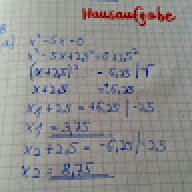 Hausaufgabe
a) x² - 5x = 0
x² - 5x + 2,5² = 0 + 2,5²
(x + 2,5)² = 6,25 | √
x + 2,5 = 6,25
x₁ + 2,5 = +6,25 | -2,5
x₁ = 3,75
x₂ + 2,5 = -6,25 | -2,5
x₂ = 8,75